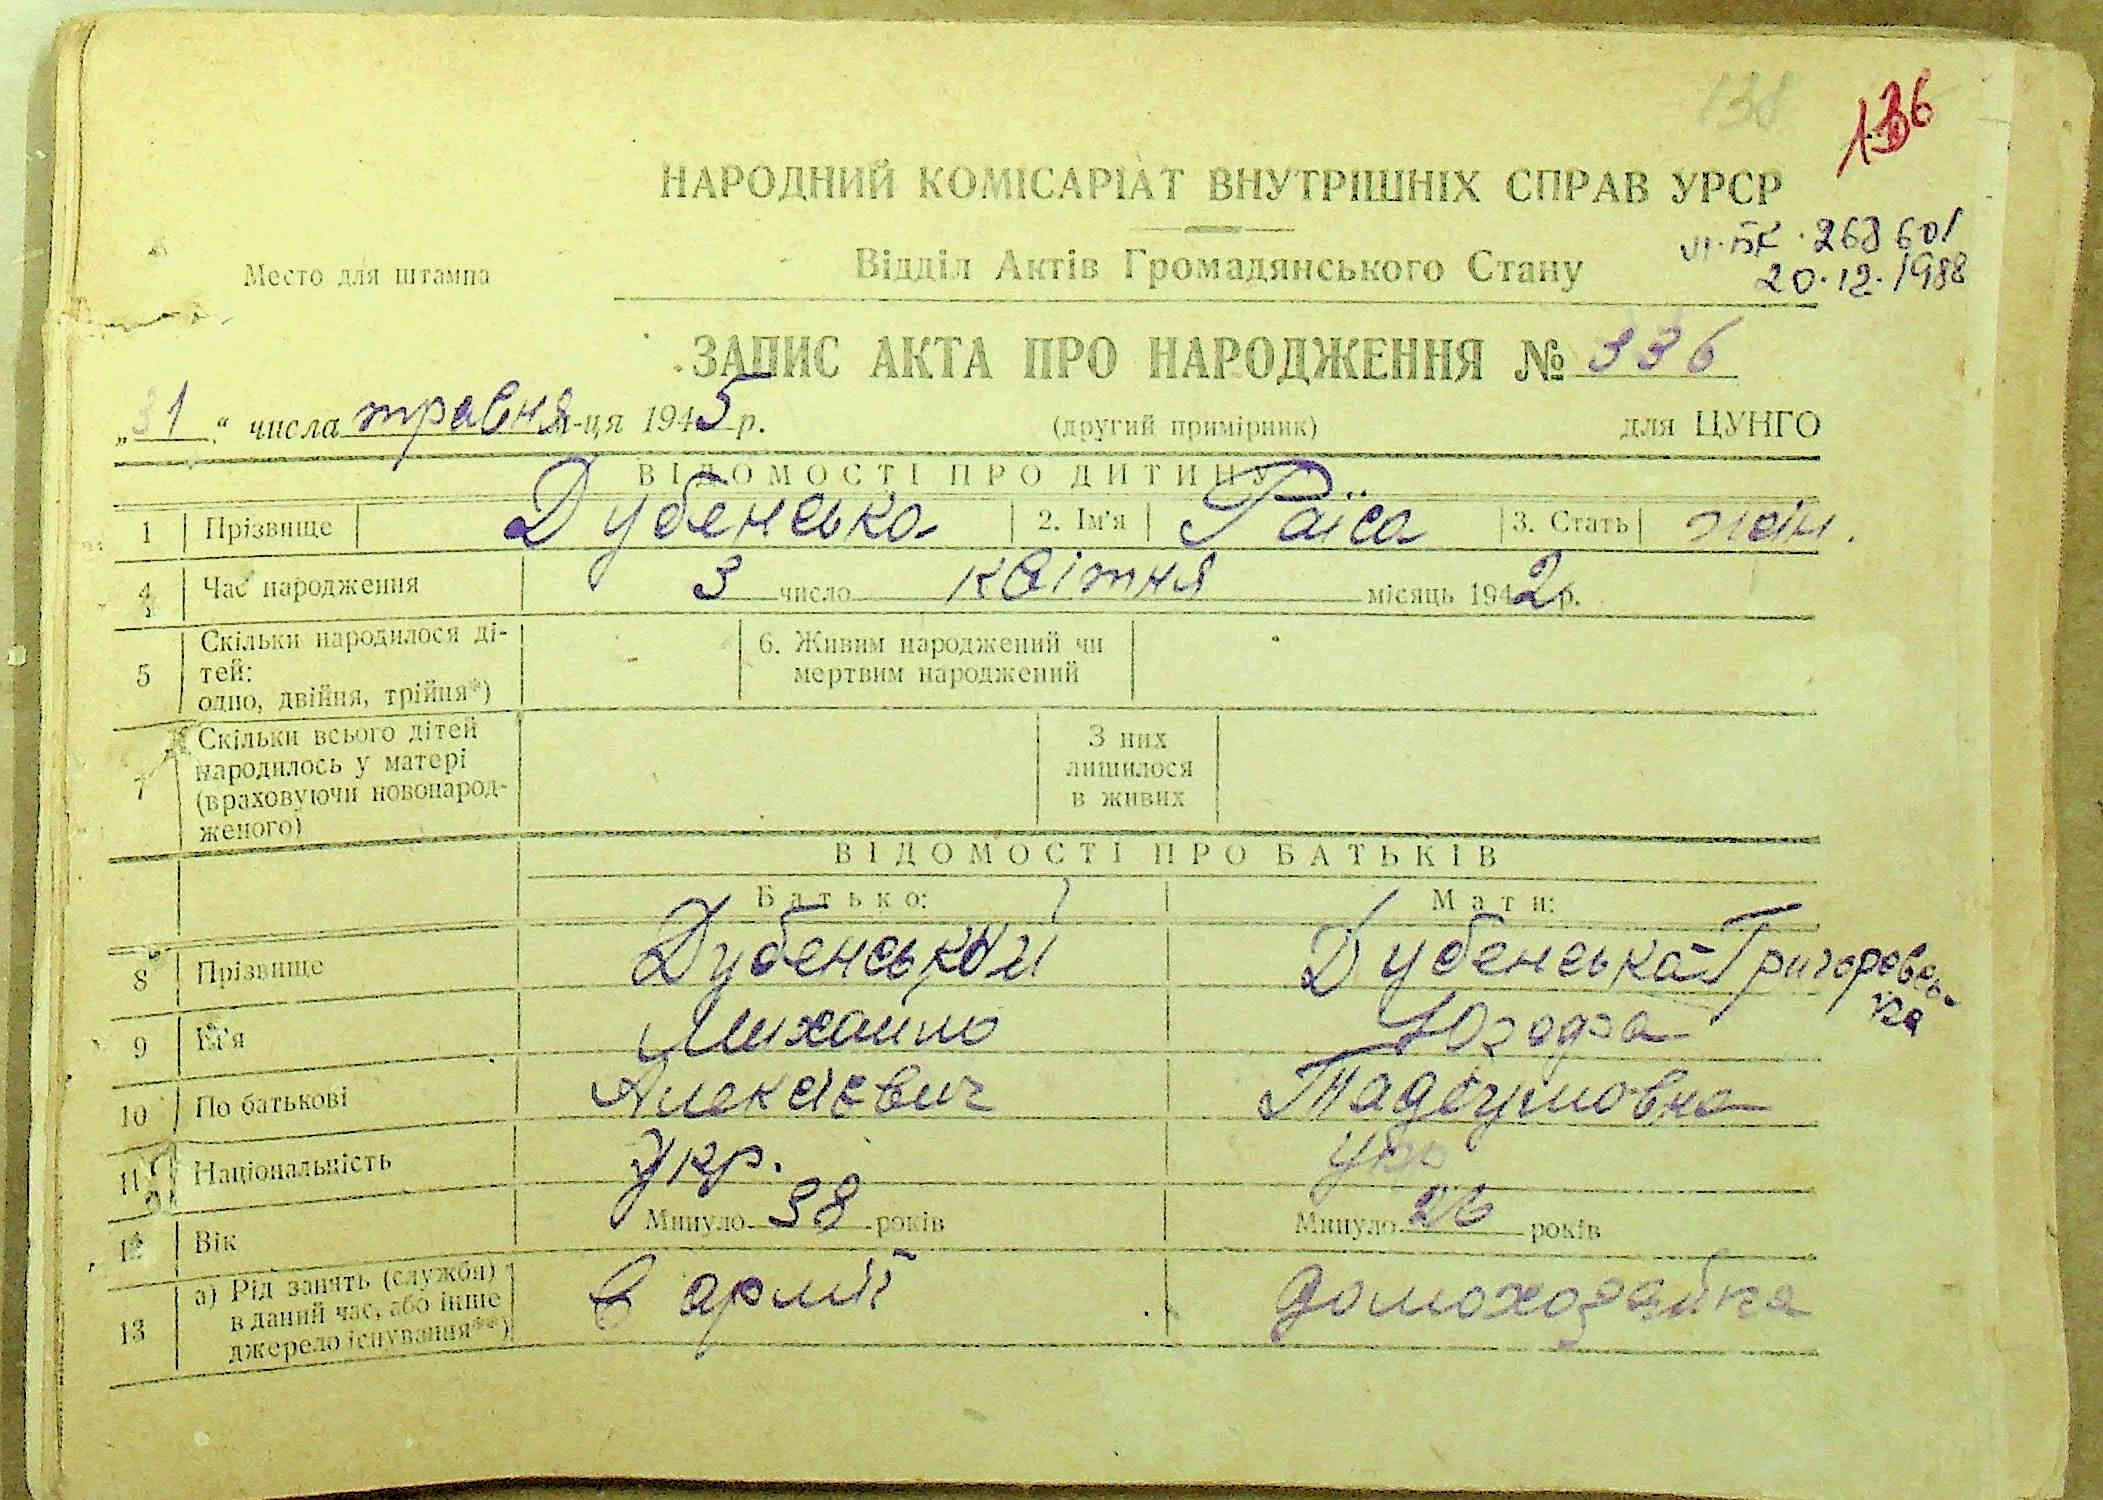 138 136
НАРОДНИЙ КОМІСАРІАТ ВНУТРІШНІХ СПРАВ УРСР
VI-БК · 268601
Место для штампа Відділ Актів Громадянського Стану 20.12.1988
ЗАПИС АКТА ПРО НАРОДЖЕННЯ № 336
„31“ числа травня м-ця 1945 р. (другий примірник) для ЦУНГО
ВІДОМОСТІ ПРО ДИТИНУ
1 Прізвище Дубенська 2. Ім'я Раїса 3. Стать жін.
4 Час народження 3 число квітня місяць 1942 р.
5 Скільки народилося ді-
тей:
одно, двійня, трійня*)
6. Живим народжений чи
мертвим народжений
7 Скільки всього дітей
народилось у матері
(враховуючи новонарод-
женого)
З них
лишилося
в живих
ВІДОМОСТІ ПРО БАТЬКІВ
Батько: Мати:
8 Прізвище Дубенський Дубенська-Григоревсь-
ка
9 Ім'я Михайло Юзефа
10 По батькові Алексієвич
11 Національність укр. укр
12 Вік Минуло 38 років Минуло 26 років
13 а) Рід занять (служби)
в даний час, або інше
джерело існування**)
в армії домохозяйка